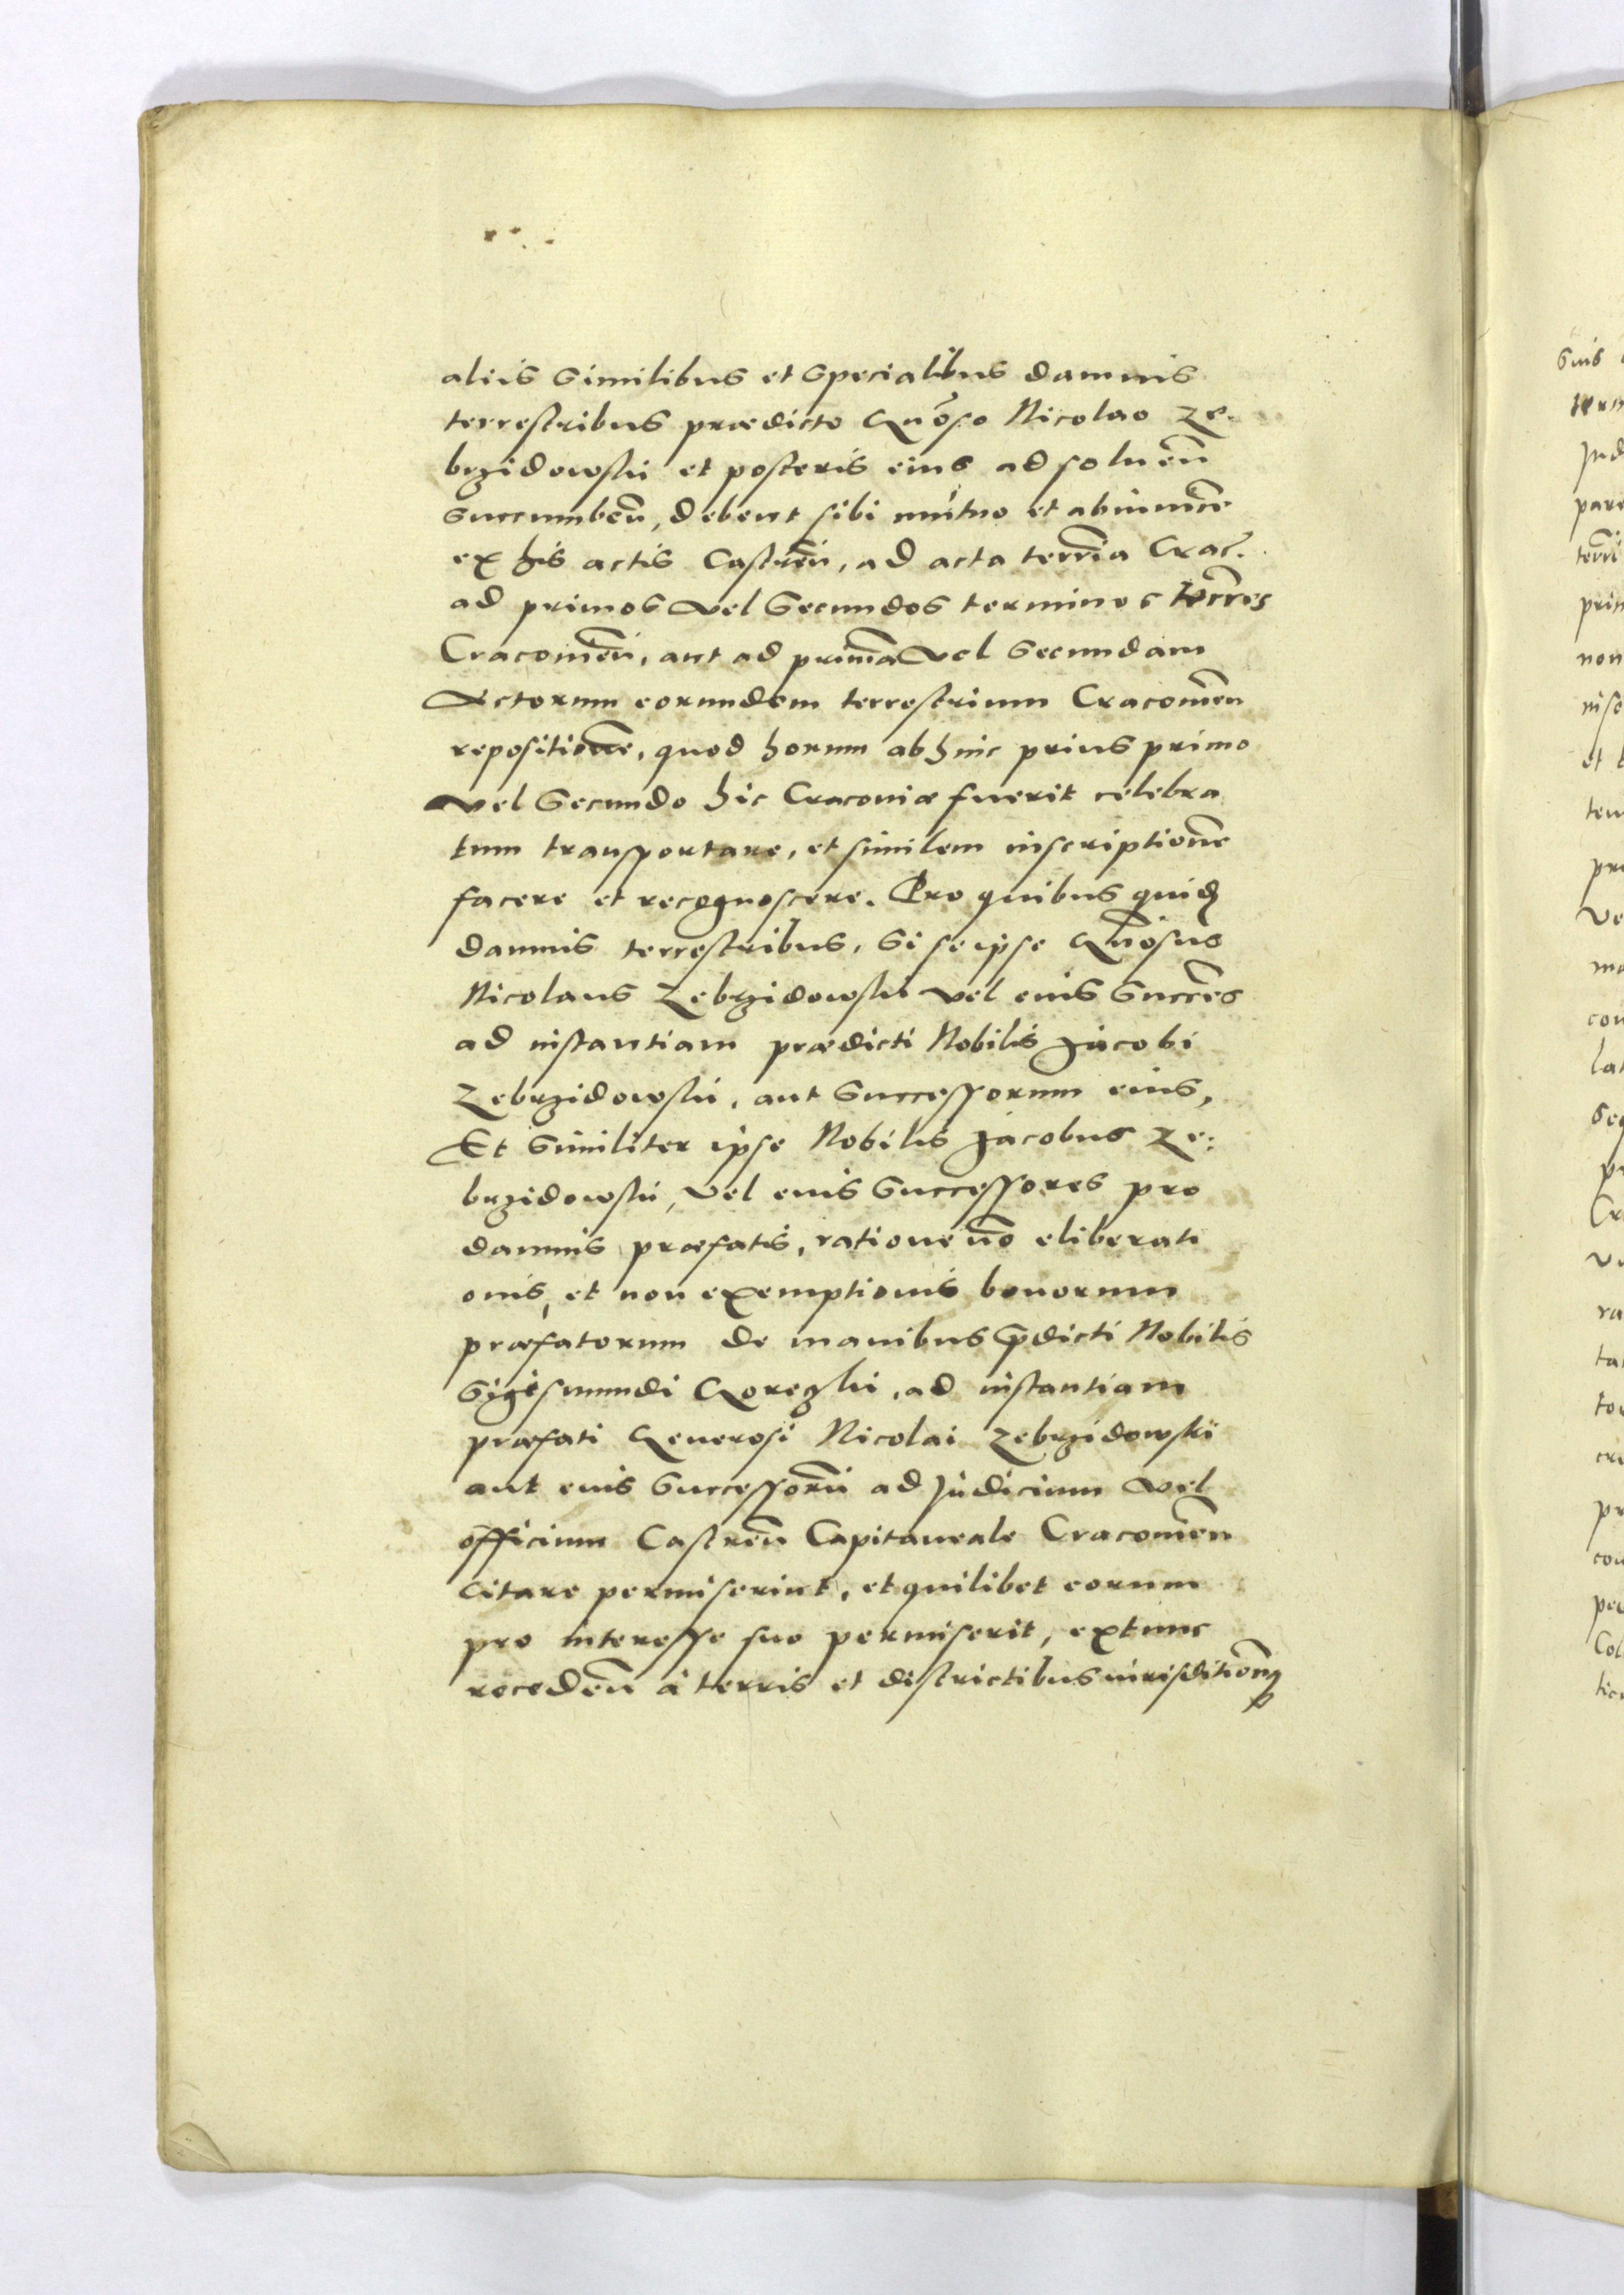 aliis similibus et specialibus damnis
terrestribus prædicto Gnõso Nicolao Ze-
brzidowski et posteris eius ad soluen̄
succumben̄, debent sibi mutuo et abinuicē
ex his actis Castren̄, ad acta terrīa Crac̄.
ad primos vel secundos terminos terr̄es
Cracouien̄, aut ad primā vel secundam
Actorum eorundem terrestrium Cracouien̄
repositionē, quod horum abhinc prius primo
vel secundo hic Cracouiæ fuerit celebra
tum transportare, et similem inscriptionē
facere et recognoscere. Pro quibus quidē
damnis terrestribus, si se ipse Gn̄osus
Nicolaus Zebrzidowski vel eius succ̄res
ad instantiam prædicti Nobilis Jacobi
Zebrzidowski, aut successorum eius,
Et similiter ipse Nobilis Jacobus Ze:
brzidowski, vel eius successores pro
damnis præfatis, ratione n̄o eliberati
onis, et non exemptionis bonorum
præfatorum de manibus p̄dicti Nobilis
Sigismundi Goreczki, ad instantiam
præfati Generosi Nicolai Zebrzidowski
aut eius successorū ad Judicium vel
officium Castren̄ Capitaneale Cracouien̄
citare permiserint, et quilibet eorum
pro interesse suo permiserit, extunc
receden̄ à terris et districtibus iurisditionēq